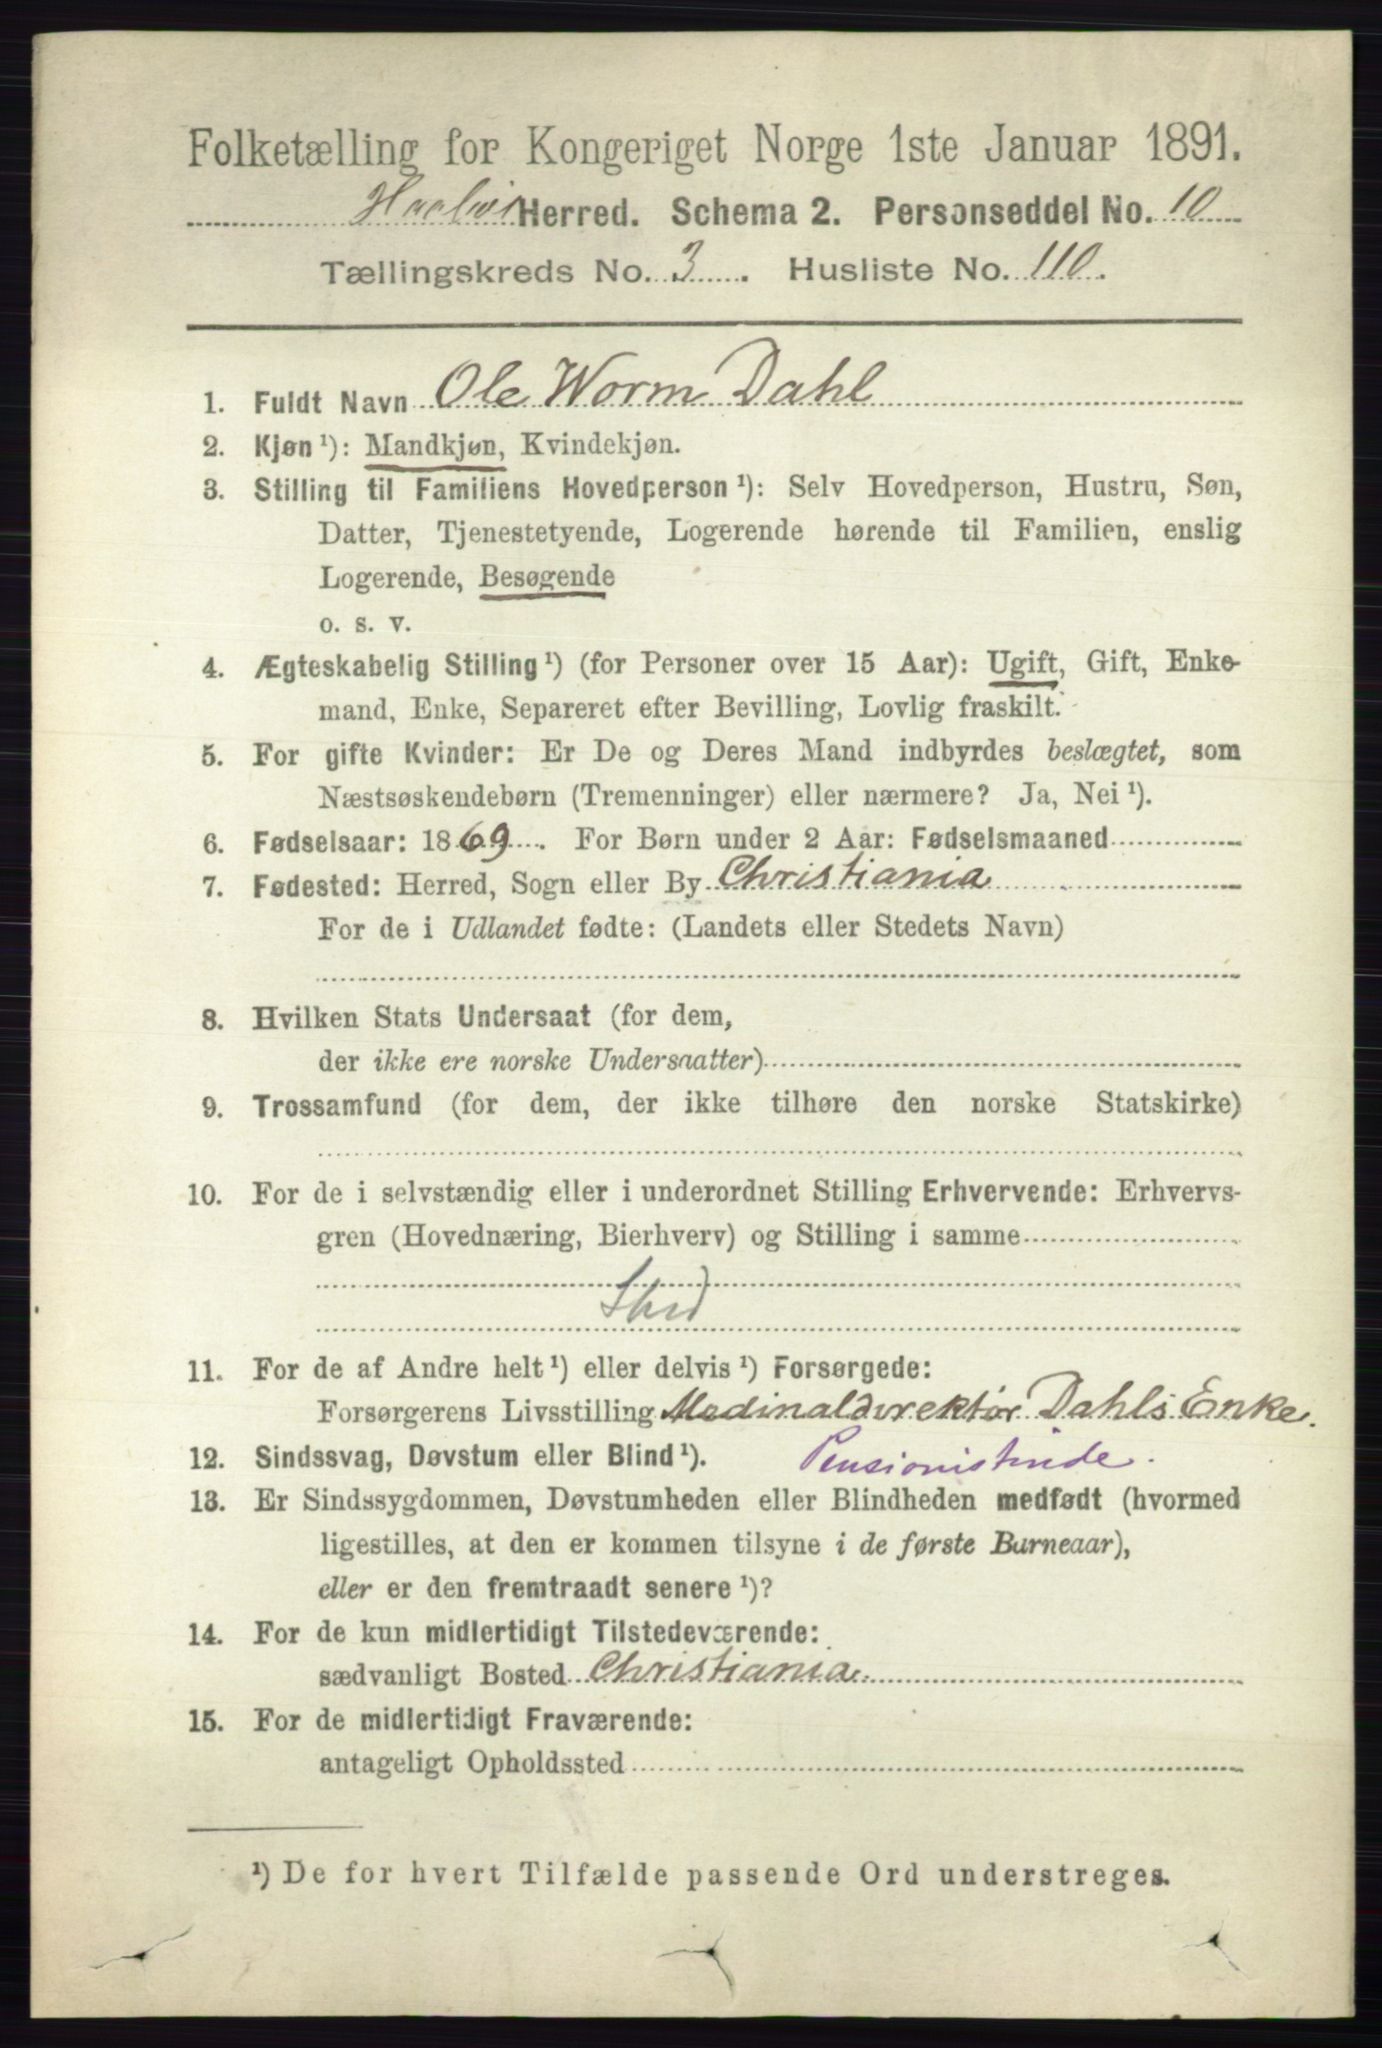 Folketælling for Kongeriget Norge 1ste Januar 1891.
Herred. Schema 2. Personseddel No. 10
Tællingskreds No. 3. Husliste No. 110.
1. Fuldt Navn Ole Worm Dahl
2. Kjøn ¹): Mandkjøn, Kvindekjøn.
3. Stilling til Familiens Hovedperson ¹): Selv Hovedperson, Hustru, Søn,
Datter, Tjenestetyende, Logerende hørende til Familien, enslig
Logerende, Besøgende
o. s. v.
4. Ægteskabelig Stilling ¹) (for Personer over 15 Aar): Ugift, Gift, Enke-
mand, Enke, Separeret efter Bevilling, Lovlig fraskilt.
5. For gifte Kvinder: Er De og Deres Mand indbyrdes beslægtet, som
Næstsøskendebørn (Tremenninger) eller nærmere? Ja, Nei ¹).
6. Fødselsaar: 1869. For Børn under 2 Aar: Fødselsmaaned
7. Fødested: Herred, Sogn eller By Christiania
For de i Udlandet fødte: (Landets eller Stedets Navn)
8. Hvilken Stats Undersaat (for dem,
der ikke ere norske Undersaatter)
9. Trossamfund (for dem, der ikke tilhøre den norske Statskirke)
10. For de i selvstændig eller i underordnet Stilling Erhvervende: Erhvervs-
gren (Hovednæring, Bierhverv) og Stilling i samme
Stud
11. For de af Andre helt ¹) eller delvis ¹) Forsørgede:
Forsørgerens Livsstilling Medinaldirektør Dahls Enke.
12. Sindssvag, Døvstum eller Blind ¹). Pensionistinde.
13. Er Sindssygdommen, Døvstumheden eller Blindheden medfødt (hvormed
ligestilles, at den er kommen tilsyne i de første Barneaar),
eller er den fremtraadt senere ¹)?
14. For de kun midlertidigt Tilstedeværende:
sædvanligt Bosted Christiania.
15. For de midlertidigt Fraværende:
antageligt Opholdssted
¹) De for hvert Tilfælde passende Ord understreges.